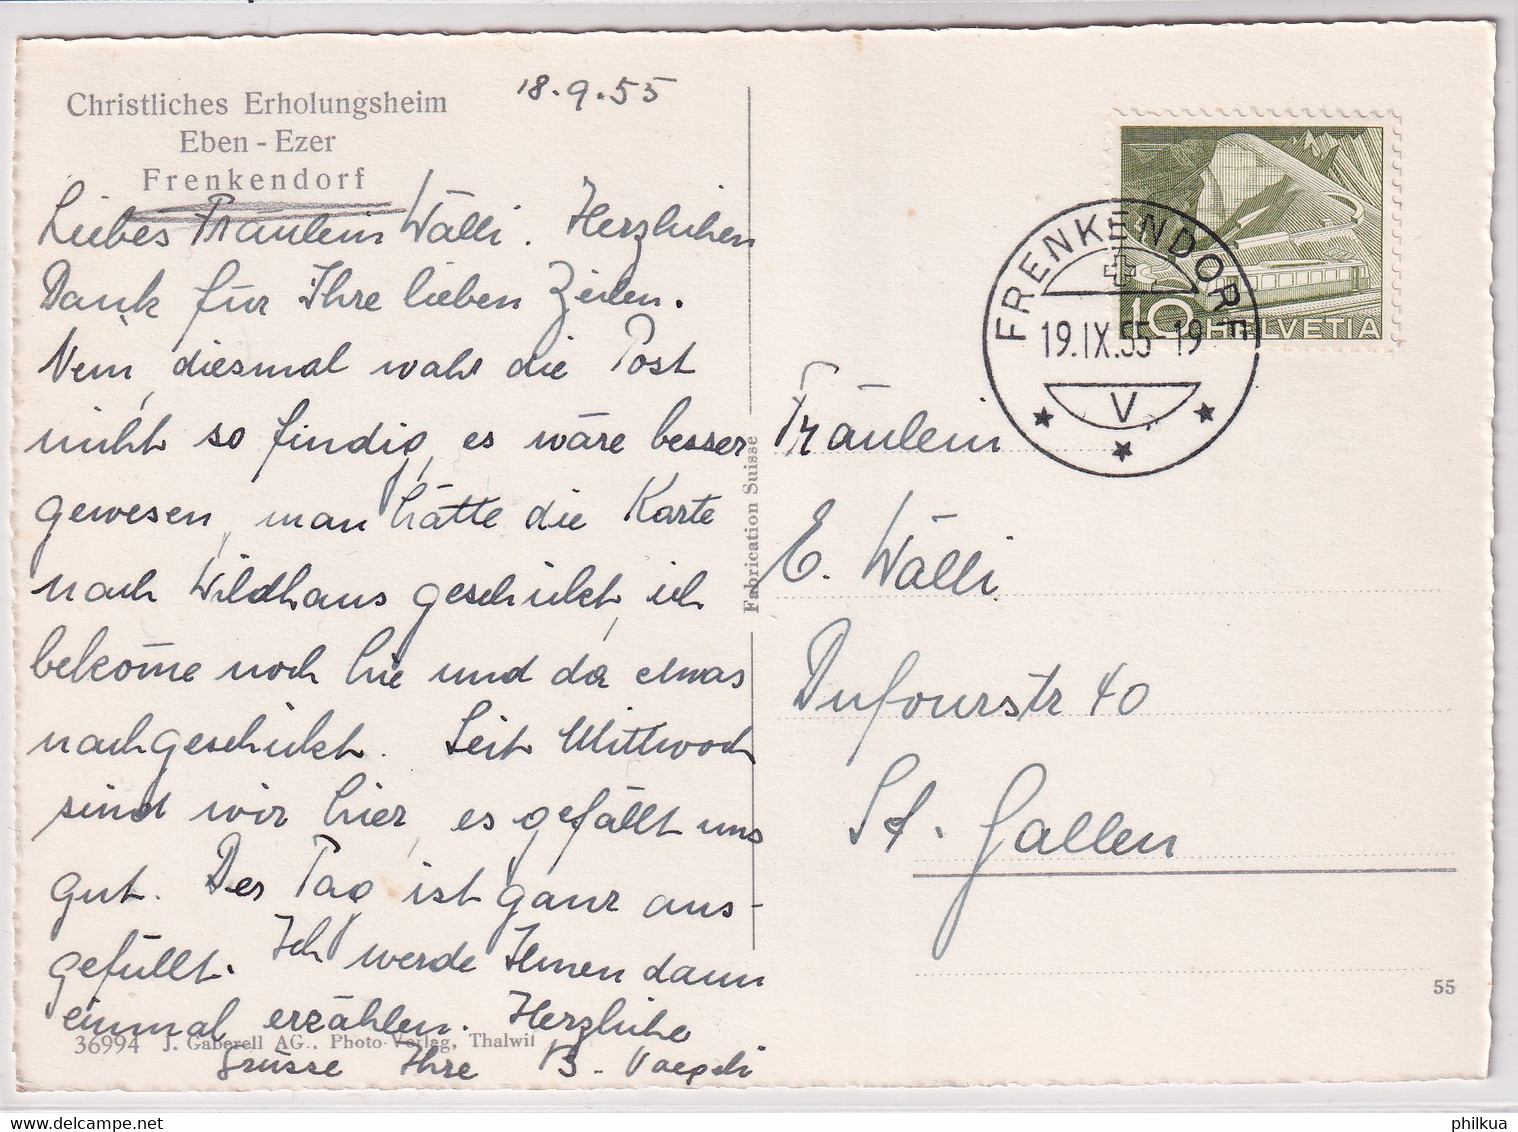 Christliches Erholungsheim
Eben - Ezer
Frenkendorf
18.9.55
Liebes Fräulein Wälli. Herzlichen
Dank für Ihre lieben Zeilen.
Nein, diesmal wahr die Post
nicht so findig, es wäre besser
gewesen, man hätte die Karte
nach Wildhaus geschickt, ich
bekome noch hie und da etwas
nachgeschickt. Seit Mittwoch
sind wir hier, es gefällt uns
gut. Der Tag ist ganz aus-
gefüllt. Ich werde Ihnen dann
einmal erzählen. Herzliche
Grüsse Ihre B.
36994 J. Gaberell AG., Photo-Verlag, Thalwil
Fabrication Suisse
FRENKENDORF
19.IX.55-19
V
10 HELVETIA
Fräulein
E. Wälli
Dufourstr 40
St. Gallen
55
philkua